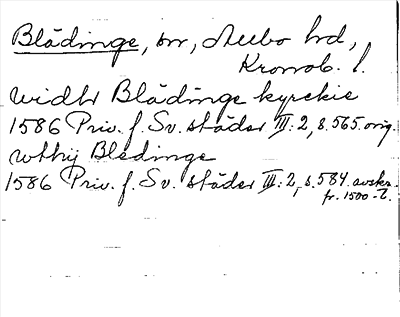 Blädinge, sn, Allbo hd,
Kronob. l.
widhr Blädinge kyrckie
1586 Priv. f. Sv. städer III:2, s. 565. orig.
wthij Bledinge
1586 Priv. f. Sv. städer III:2, s. 584. avskr.
fr. 1500-t.